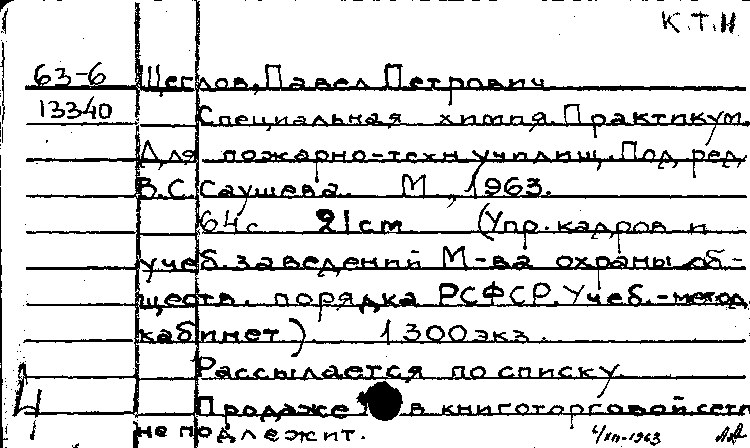 К.Т.Н
63-6 Щеглов, Павел Петрович
13340 Специальная химия. Практикум.
Для пожарно-техн. училищ. Под ред.
В.С. Саушева. М., 1963.
64с 21 cm (Упр. кадров и
учеб. заведений М-ва охраны об-
ществ. порядка РСФСР. Учеб.-метод.
кабинет). 1300 экз.
Рассылается по списку.
Продаже в книготорговой сети
не подлежит. 4/XII-1963